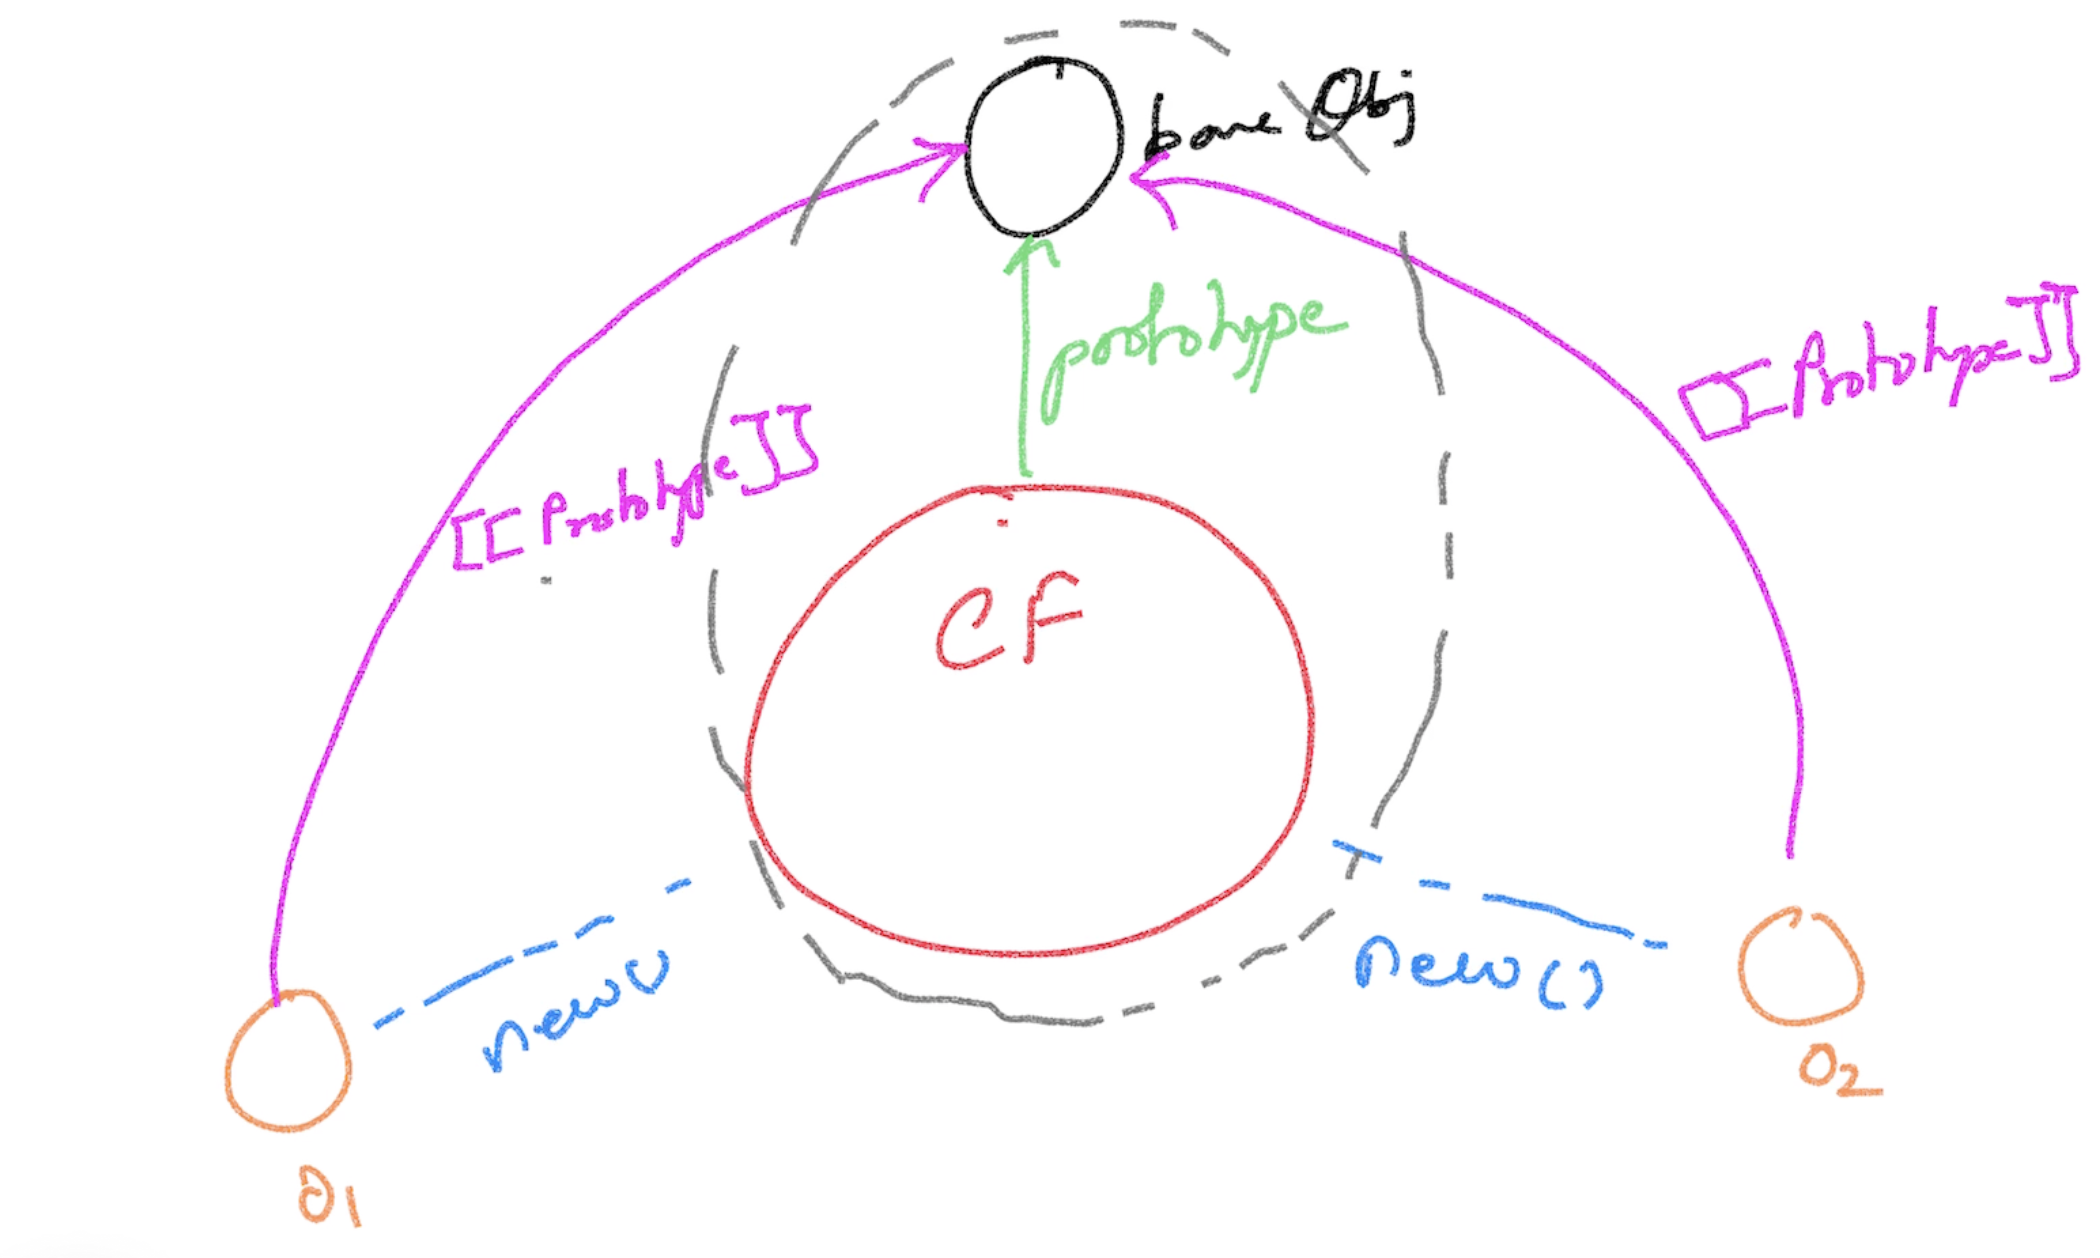 base Obj
prototype
[[Prototype]]
[[Prototype]]
CF
new()
new()
O1
O2